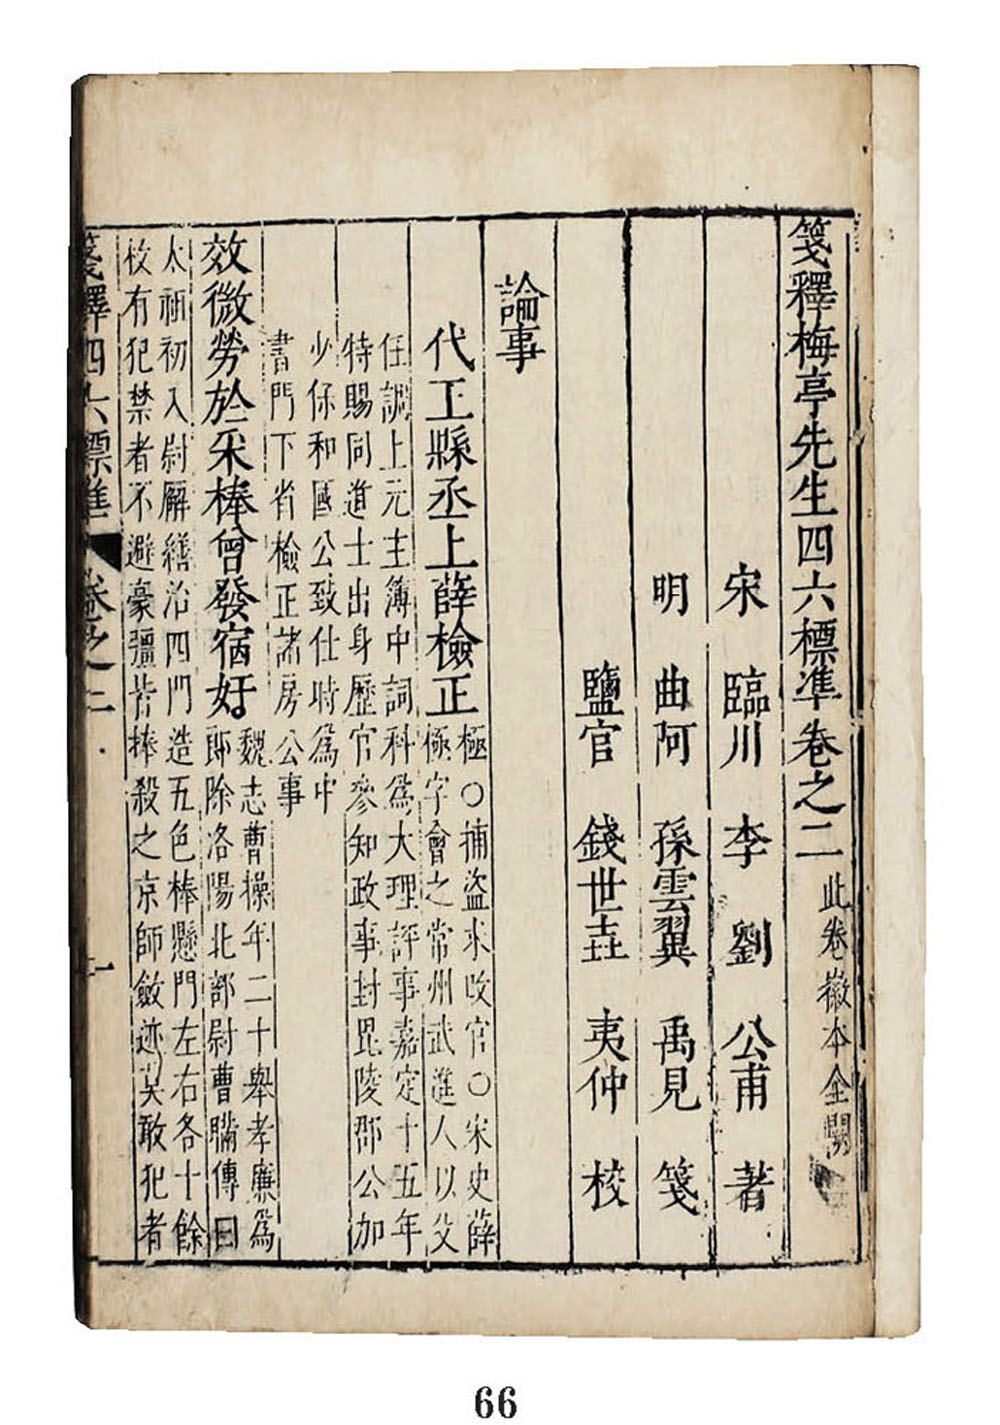 箋釋梅亭先生四六標準卷之二 此卷徽本全闕
宋 臨川 李劉 公甫 著
明 曲阿 孫雲翼 禹見 箋
鹽官 錢世垚 夷仲 校
論事
代王縣丞上薛檢正 極○捕盜求改官○宋史薛
極字會之常州武進人以父
任調上元主簿中詞科爲大理評事嘉定十五年
特賜同進士出身歷官參知政事封毘陵郡公加
少保和國公致仕時爲中
書門下省檢正諸房公事
效微勞於采棒曾發宿奸 魏志曹操年二十舉孝廉爲
郎除洛陽北部尉曹瞞傳曰
太祖初入尉廨繕治四門造五色棒懸門左右各十餘
枚有犯禁者不避豪彊皆棒殺之京師斂迹莫敢犯者
箋釋四六標準 卷之二 一
66